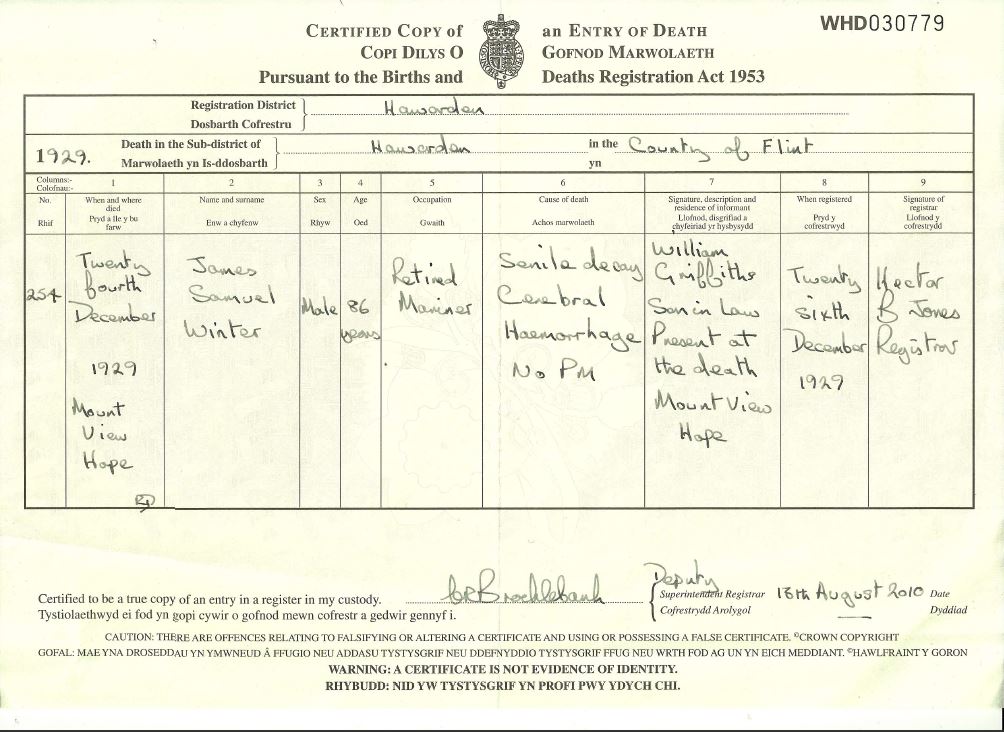 WHD030779
CERTIFIED COPY OF an ENTRY OF DEATH
COPI DILYS O GOFNOD MARWOLAETH
Pursuant to the Births and Deaths Registration Act 1953
Registration District Hawarden
Dosbarth Cofrestru
1929. Death in the Sub-district of Hawarden in the County of Flint
Marwolaeth yn Is-ddosbarth yn
Columns:- 1 2 3 4 5 6 7 8 9
Colofnau:-
No. When and where died Name and surname Sex Age Occupation Cause of death Signature, description and residence of informant When registered Signature of registrar
Rhif Pryd a lle y bu farw Enw a chyfenw Rhyw Oed Gwaith Achos marwolaeth Llofnod, disgrifiad a chyfeiriad yr hysbysydd Pryd y cofrestrwyd Llofnod y cofrestrydd
254
Twenty
fourth
December
1929
Mount
View
Hope
James
Samuel
Winter
Male
86
years
Retired
Mariner
Senile decay
Cerebral
Haemorrhage
No PM
William
Griffiths
Son in Law
Present at
the death
Mount View
Hope
Twenty
sixth
December
1929
Hector
B Jones
Registrar
Deputy
Certified to be a true copy of an entry in a register in my custody. Superintendent Registrar 18th August 2010 Date
Tystiolaethwyd ei fod yn gopi cywir o gofnod mewn cofrestr a gedwir gennyf i. Cofrestrydd Arolygol Dyddiad
CAUTION: THERE ARE OFFENCES RELATING TO FALSIFYING OR ALTERING A CERTIFICATE AND USING OR POSSESSING A FALSE CERTIFICATE. ©CROWN COPYRIGHT
GOFAL: MAE YNA DROSEDDAU YN YMWNEUD Â FFUGIO NEU ADDASU TYSTYSGRIF NEU DDEFNYDDIO TYSTYSGRIF FFUG NEU WRTH FOD AG UN YN EICH MEDDIANT. ©HAWLFRAINT Y GORON
WARNING: A CERTIFICATE IS NOT EVIDENCE OF IDENTITY.
RHYBUDD: NID YW TYSTYSGRIF YN PROFI PWY YDYCH CHI.